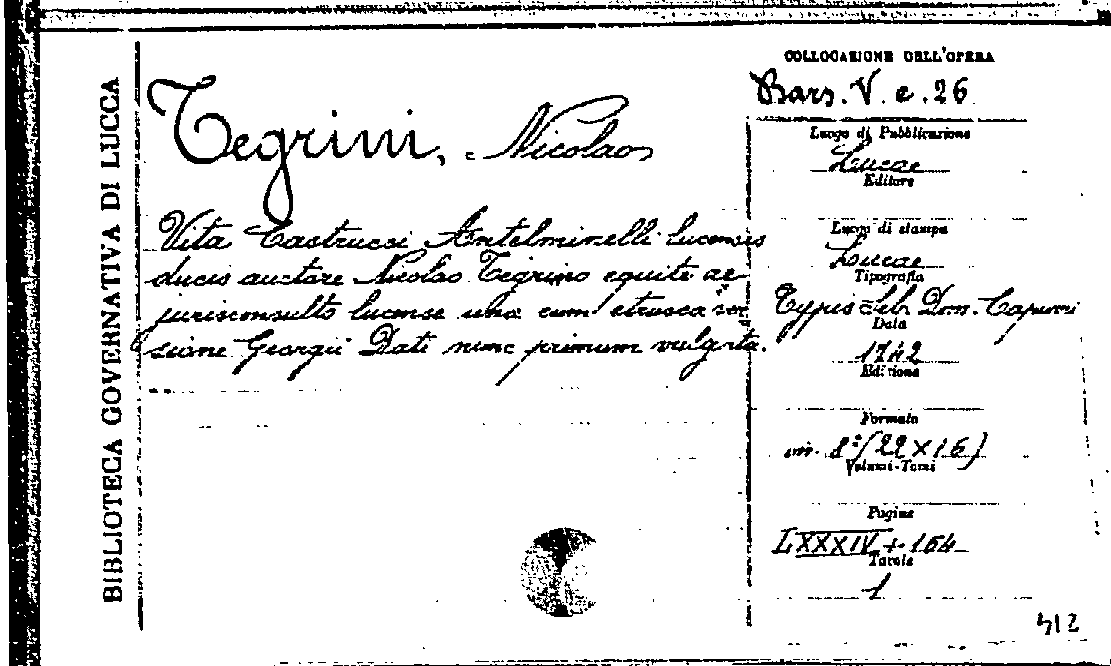 BIBLIOTECA GOVERNATIVA DI LUCCA
Tegrini, Nicolao
Vita Castrucci Antelminelli lucensis
ducis auctore Nicolao Tegrino equite ac
jurisconsulto lucense una cum etrusca ver
sione Georgii Dati nunc primum vulgata.
COLLOCAZIONE DELL'OPERA
Bars. V. e. 26
Luogo di Pubblicazione
Lucae
Editore
Luogo di stampa
Lucae
Tipografia
Typis Seb. Dom. Capurri
Data
1742
Edizione
Formato
in. 8° (22 x 16)
Volumi-Tomi
Pagine
LXXXIV + 164
Tavole
1
412